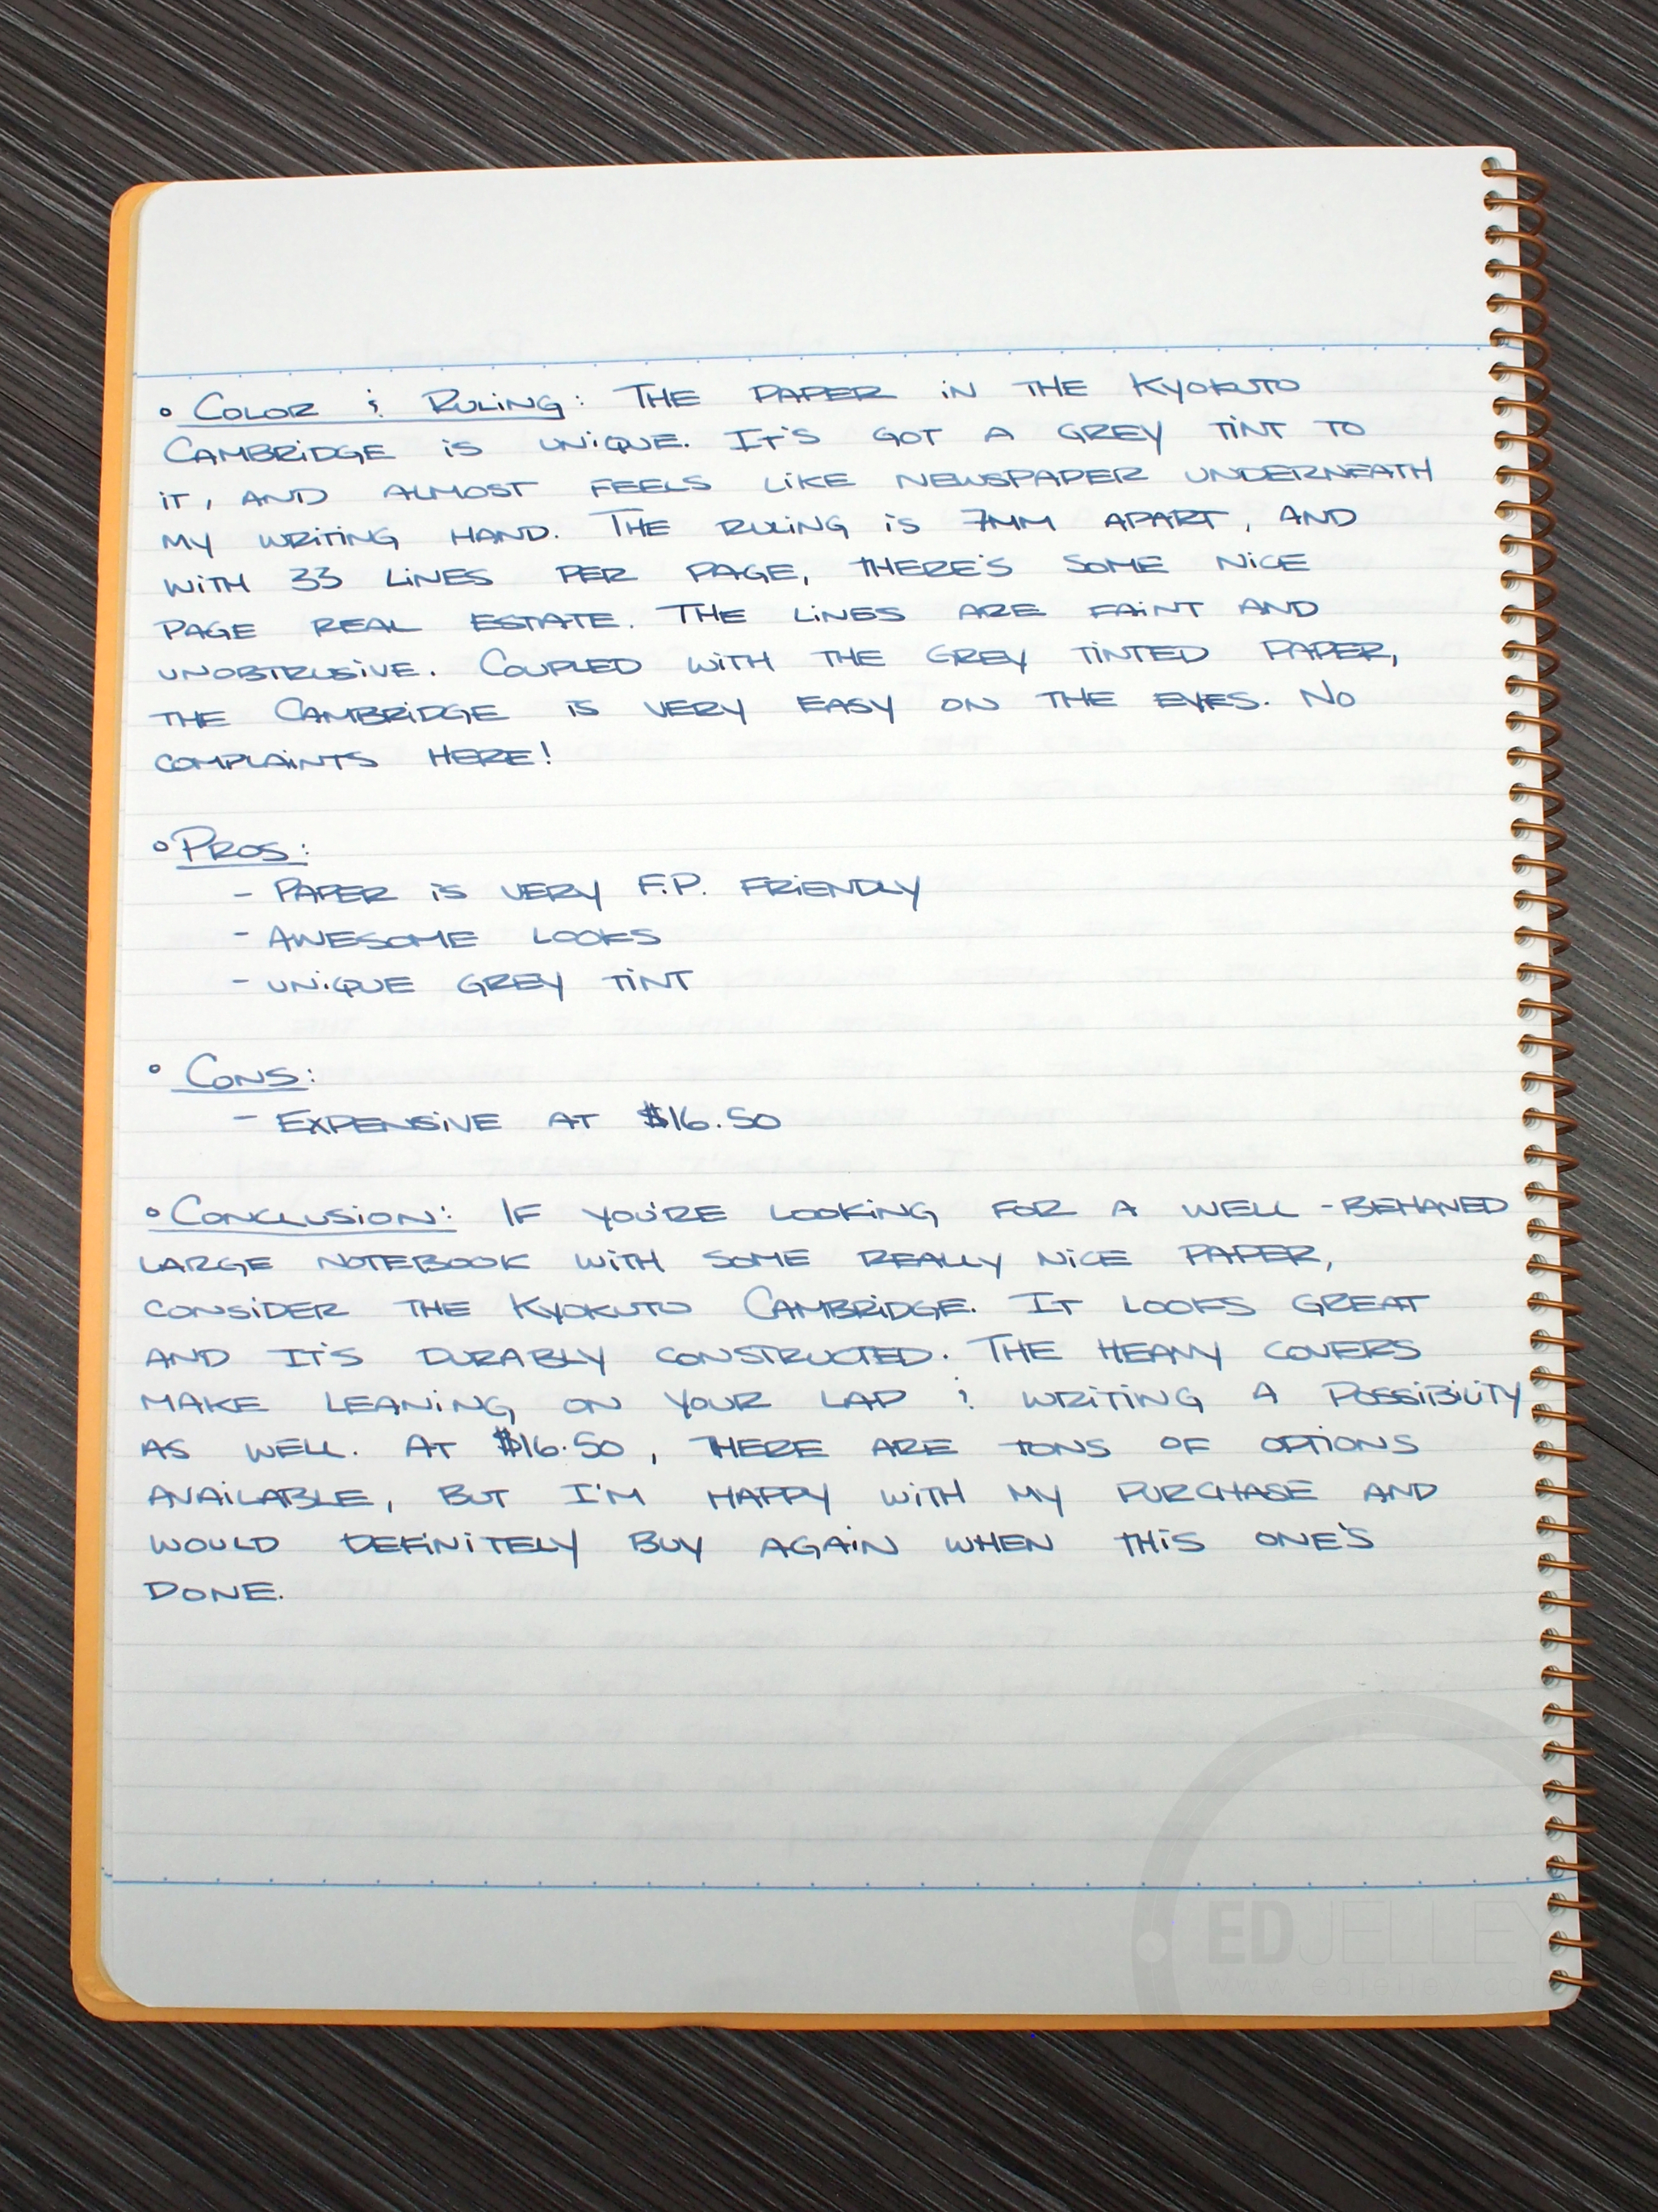 • Color & Ruling: The paper in the Kyokuto
Cambridge is unique. It's got a grey tint to
it, and almost feels like newspaper underneath
my writing hand. The ruling is 7mm apart, and
with 33 lines per page, there's some nice
page real estate. The lines are faint and
unobtrusive. Coupled with the grey tinted paper,
the Cambridge is very easy on the eyes. No
complaints here!
• Pros:
- Paper is very F.P. friendly
- Awesome looks
- unique grey tint
• Cons:
- Expensive at $16.50
• Conclusion: If you're looking for a well-behaved
large notebook with some really nice paper,
consider the Kyokuto Cambridge. It looks great
and it's durably constructed. The heavy covers
make leaning on your lap & writing a possibility
as well. At $16.50, there are tons of options
available, but I'm happy with my purchase and
would definitely buy again when this one's
done.
EDJELLEY